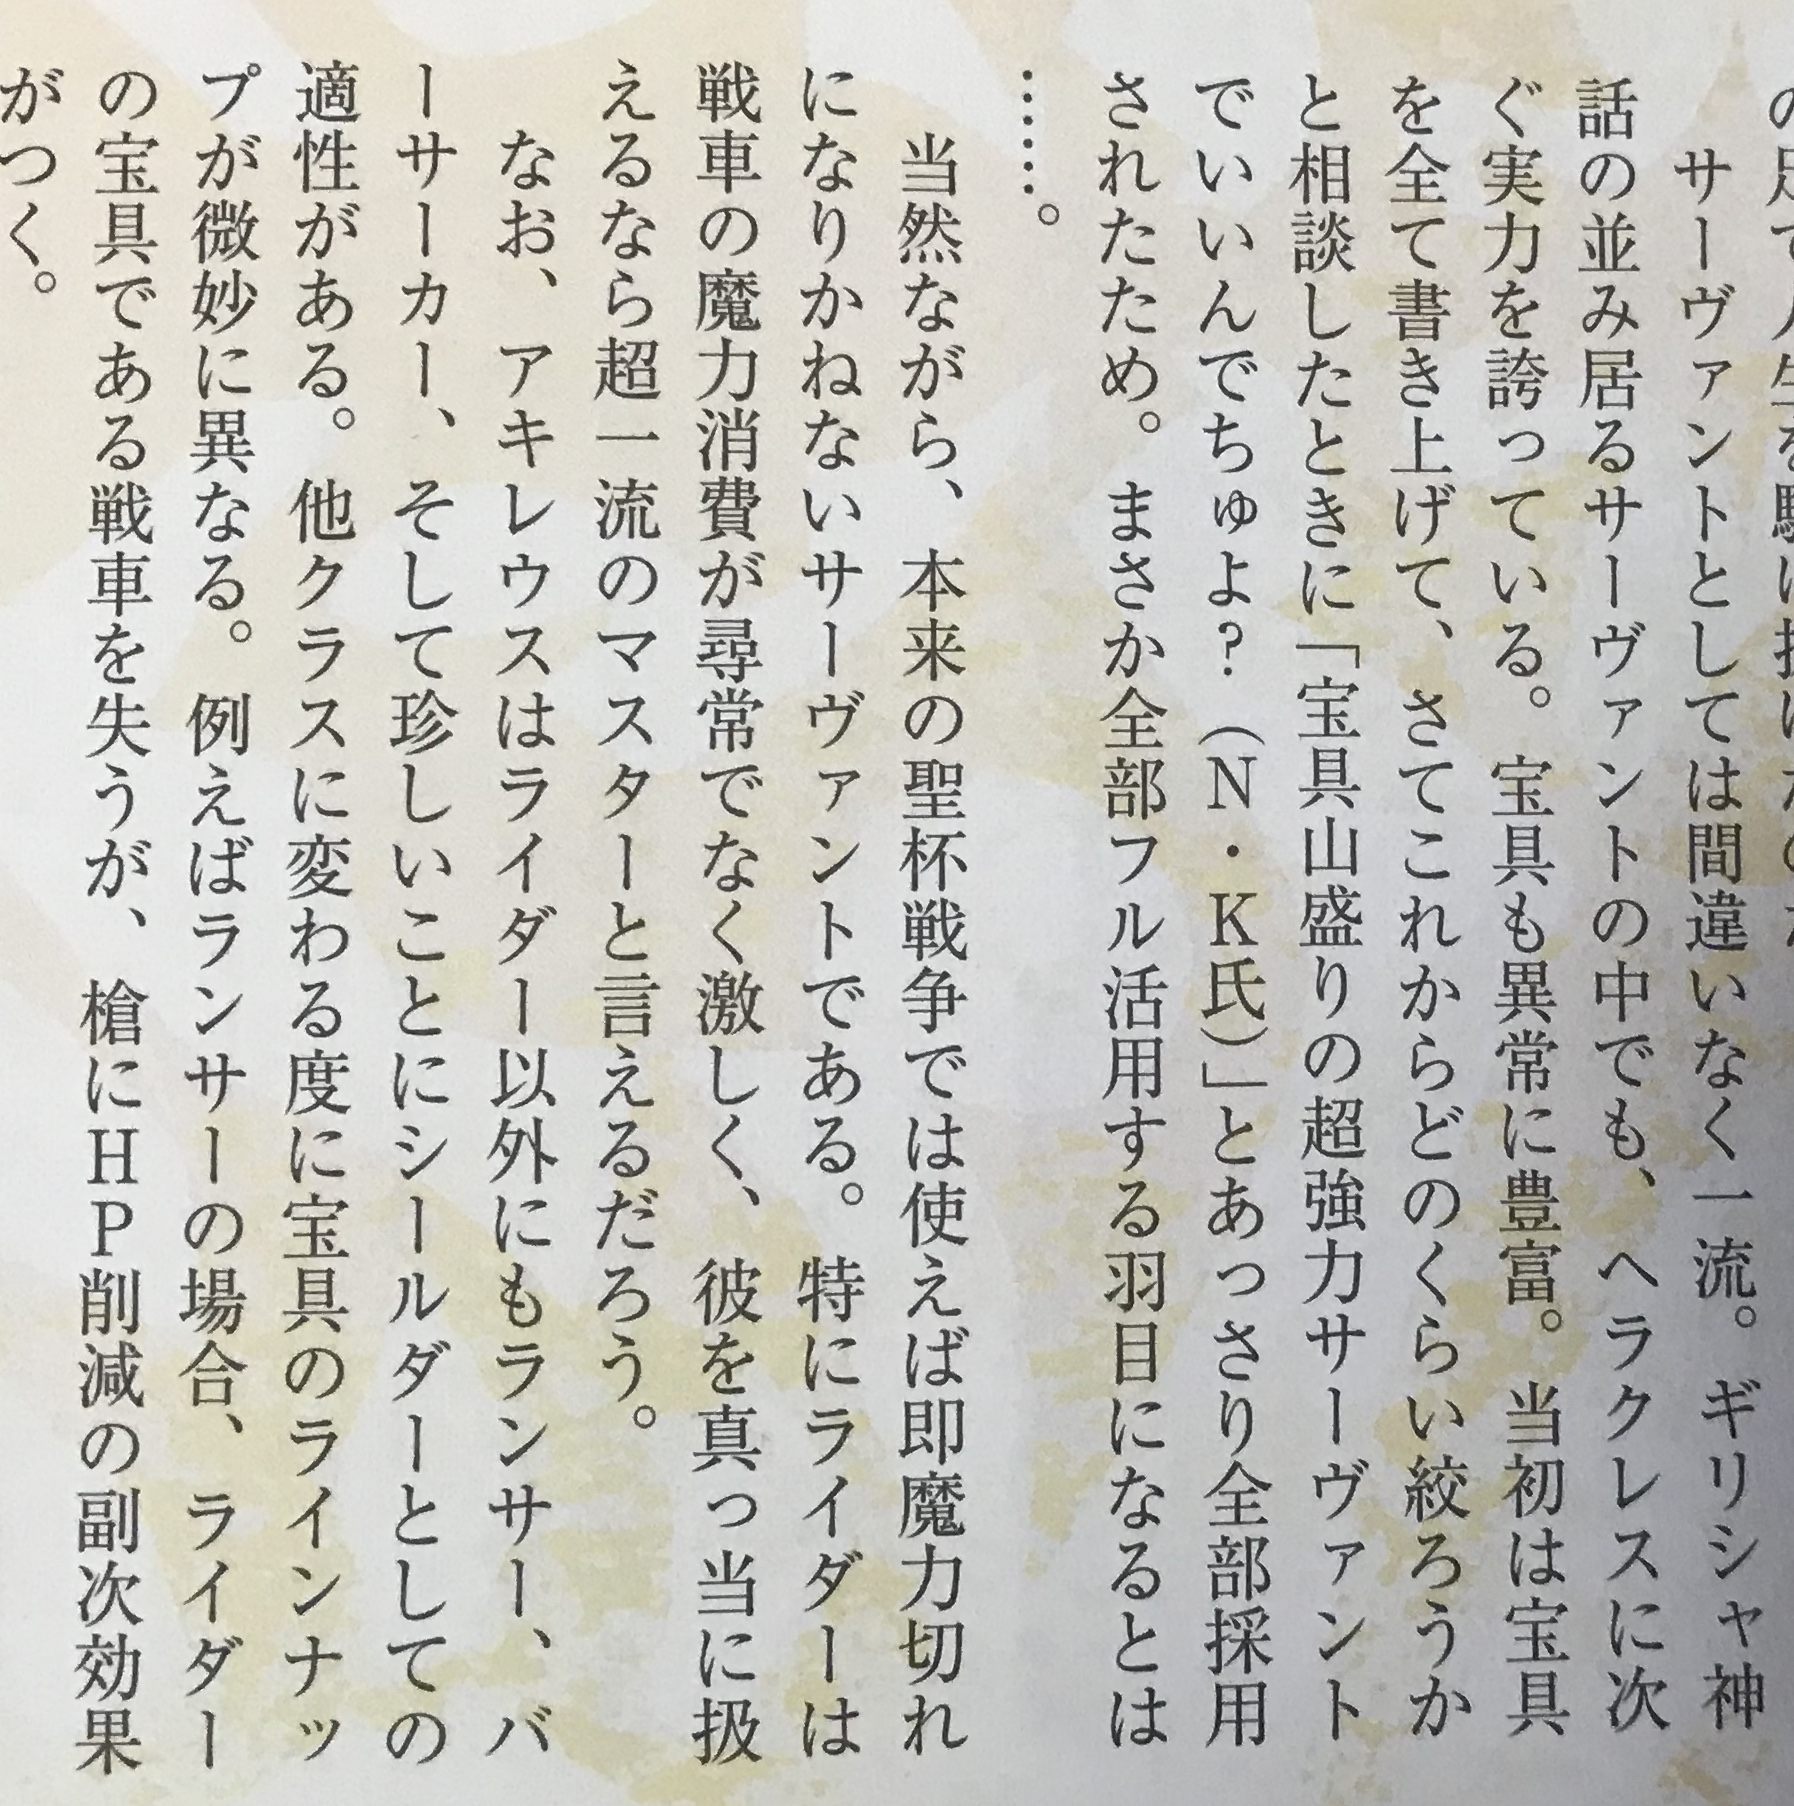 サーヴァントとしては間違いなく一流。ギリシャ神
話の並み居るサーヴァントの中でも、ヘラクレスに次
ぐ実力を誇っている。宝具も異常に豊富。当初は宝具
を全て書き上げて、さてこれからどのくらい絞ろうか
と相談したときに「宝具山盛りの超強力サーヴァント
でいいんでちゅよ?(N・K氏)」とあっさり全部採用
されたため。まさか全部フル活用する羽目になるとは
……。
当然ながら、本来の聖杯戦争では使えば即魔力切れ
になりかねないサーヴァントである。特にライダーは
戦車の魔力消費が尋常でなく激しく、彼を真っ当に扱
えるなら超一流のマスターと言えるだろう。
なお、アキレウスはライダー以外にもランサー、バ
ーサーカー、そして珍しいことにシールダーとしての
適性がある。他クラスに変わる度に宝具のラインナッ
プが微妙に異なる。例えばランサーの場合、ライダー
の宝具である戦車を失うが、槍にHP削減の副次効果
がつく。